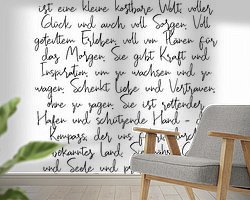 ist eine kleine kostbare Welt, voller
Glück und auch voll Sorgen. Voll
geteiltem Erleben, voll von Plänen für
das Morgen. Sie gibt Kraft und
Inspiration, um zu wachsen und zu
wagen. Schenkt Liebe und Vertrauen,
ohne zu fragen. Sie ist rettender
Hafen und schützende Hand - d
Kompass, der uns f
bekanntes Land. Sie
und Seele und